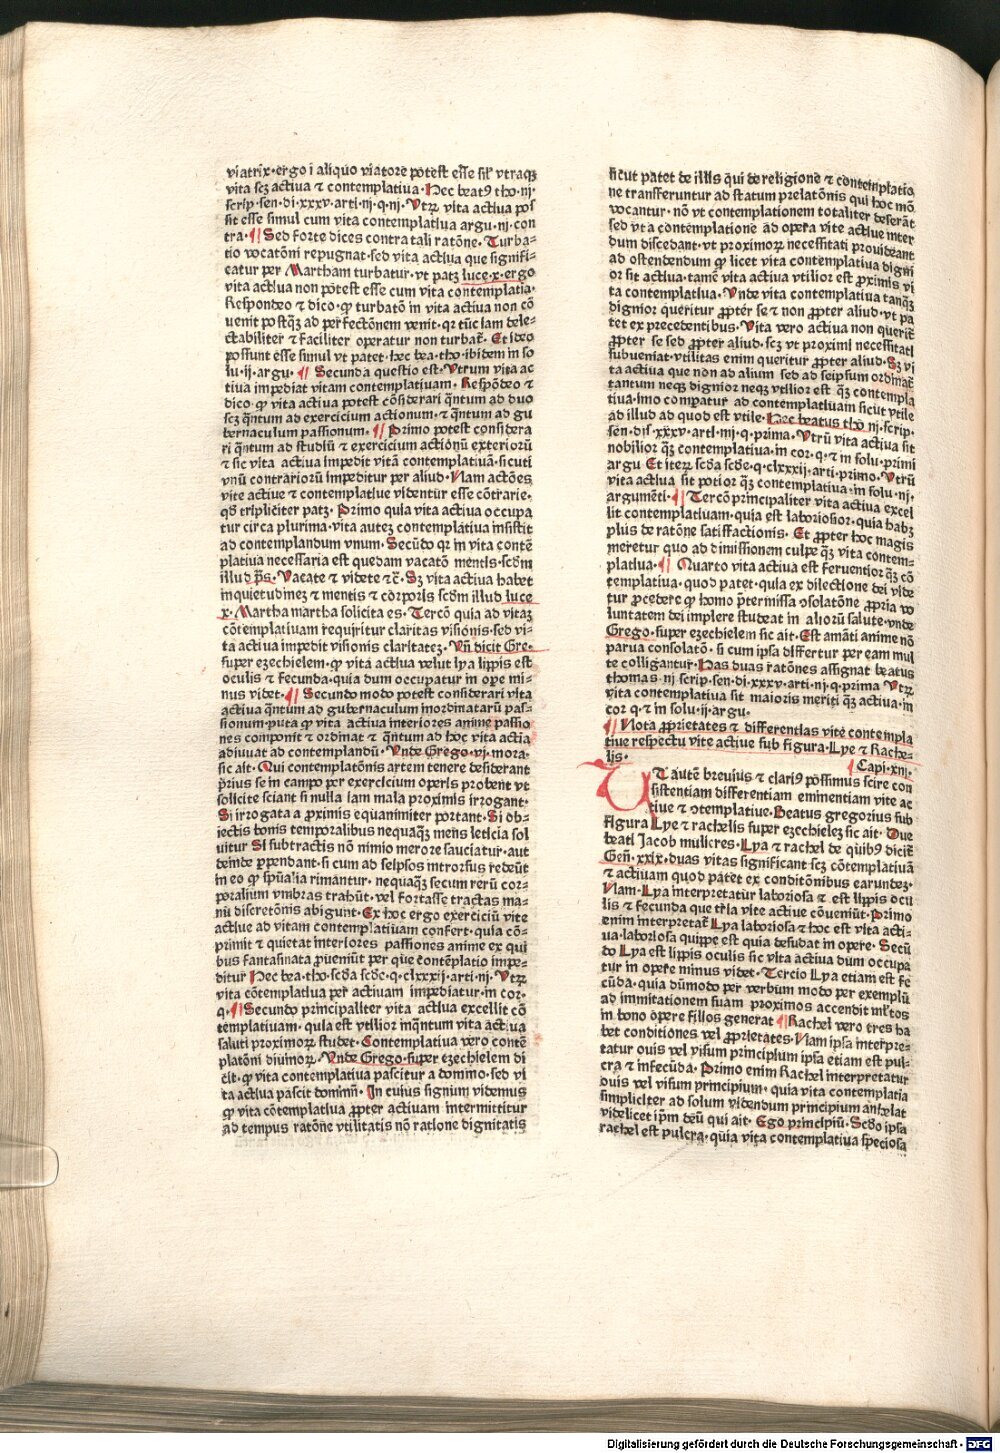 viatrix·ergo ī aliquo viatore potest esse siƚ vtraqȝ
vita scȝ actiua ⁊ contemplatiua·Hec beatꝰ tho·iij·
scrip·sen·di·xxxv·arti·iij·q·iij·Vtꝝ vita actiua pos
sit esse simul cum vita contemplatiua argu·iij·con
tra·¶ Sed forte dices contra tali ratōne·Turba-
tio vocatōni repugnat·sed vita actiua que signifi-
catur per Martham turbatur·vt patȝ luce·x·ergo
vita actiua non potest esse cum vita contemplatia·
Respondeo ⁊ dico·ꝙ turbatō in vita actiua non cō
uenit postqȝ ad perfectōnem venit·qꝛ tūc iam dele-
ctabiliter ⁊ faciliter operatur non turbat᷑·Et ideo
possunt esse simul vt patet·hec bea·tho·ibidem in so
lu·ij·argu·¶ Secunda questio est·Vtrum vita ac
tiua impediat vitam contemplatiuam·Respōdeo ⁊
dico·ꝙ vita actiua potest cōsiderari qntum ad duo
scȝ qntum ad exercicium actionum·⁊ qntum ad gu
bernaculum passionum·¶ Primo potest considera
ri qntum ad studiū ⁊ exercicium actionū exteriorū
⁊ sic vita actiua impedit vitā contemplatiuā·sicuti
vnū contrariorū impeditur per aliud·Nam actōes
vite actiue ⁊ contemplatiue videntur esse cōtrarie·
qd tripliciter patȝ·Primo quia vita actiua occupa
tur circa plurima·vita autez contemplatiua insistit
ad contemplandum vnum·Secūdo qꝛ in vita contē
platiua necessaria est quedam vacatō mentis·scdm
illud pš·Vacate ⁊ videte ⁊c̄·Sȝ vita actiua habet
inquietudinez ⁊ mentis ⁊ corporis scdm illud luce
x·Martha martha solicita es·Tercō quia ad vitaȝ
cōtemplatiuam requiritur claritas visionis·sed vi-
ta actiua impedit visionis claritatez·Vn dicit Gre·
super ezechielem·ꝙ vita actiua velut lya lippis est
oculis ⁊ fecunda·quia dum occupatur in ope mi-
nus videt·¶ Secundo modo potest considerari vita
actiua qntum ad gubernaculum inordinatarū pas-
sionum·puta ꝙ vita actiua interiores anime passio
nes componit ⁊ ordinat ⁊ qntum ad hoc vita actia
adiuuat ad contemplandū·Vnde Grego·vj·mora·
sic ait·Qui contemplatōnis artem tenere desiderant
prius se in campo per exercicium operis probent vt
solicite sciant si nulla iam mala proximis irrogant·
Si irrogata a proximis equanimiter portant·Si ob-
iectis bonis temporalibus nequaqȝ mens leticia sol
uitur Si subtractis nō nimio merore sauciatur·aut
deinde perpendant·si cum ad seipsos introrsus redeūt
in eo ꝙ spūalia rimantur·nequaqȝ secum rerū cor-
poralium vmbras trahūt·vel fortasse tractas ma-
nū discretōnis abigunt·Ex hoc ergo exerciciū vite
actiue ad vitam contemplatiuam confert·quia cō-
primit ⁊ quietat interiores passiones anime ex qui
bus fantasmata proueniūt per que contēplatio impe-
ditur Hec bea·tho·scda scde·q·clxxxij·arti·iij·Vtꝝ
vita cōtemplatiua per actiuam impediatur·in cor·
q·¶ Secundo principaliter vita actiua excellit cō
templatiuam·quia est vtilior inqntum vita actiua
saluti proximoꝝ studet·Contemplatiua vero contē
platōni diuinoꝝ·Vnde Grego·super ezechielem di
cit·ꝙ vita contemplatiua pascitur a domino·sed vi
ta actiua pascit dominū·In cuius signum videmus
ꝙ vita cōtemplatiua propter actiuam intermittitur
ad tempus ratōne vtilitatis nō ratione dignitatis
sicut patet de illis qui de religione ⁊ contemplatio
ne transferuntur ad statum prelatōnis qui hoc mō
vocantur·nō vt contemplationem totaliter deserāt
sed vt a contemplatione ad opera vite actiue inter
dum discedant·vt proximoꝝ necessitati prouideant
ad ostendendum ꝙ licet vita contemplatiua digni
or sit actiua·tamē vita actiua vtilior est proximis vi
ta contemplatiua·Vnde vita contemplatiua tanqȝ
dignior queritur propter se ⁊ non propter aliud·vt pa
tet ex precedentibus·Vita vero actiua non querit᷑
propter se sed propter aliud·scȝ vt proximi necessitati
subueniat·vtilitas enim queritur propter aliud·Sȝ vi
ta actiua que non ad alium sed ad seipsum ordinat᷑
tantum neqȝ dignior neqȝ vtilior est qȝ contempla
tiua·imo compatur ad contemplatiuam sicut vtile
ad illud ad quod est vtile·Hec beatus tho iij·scrip·
sen·dis·xxxv·arti·iiij·q·prima·Vtrū vita actiua sit
nobilior qȝ contemplatiua·in cor·q·⁊ in solu·primi
argu Et iteꝝ scda scde·q·clxxxij·arti·primo·Vtrū
vita actiua sit potior qȝ contemplatiua·in solu·iij·
argumēti·¶ Tercō principaliter vita actiua excel
lit contemplatiuam·quia est laboriosior·quia habȝ
plus de ratōne satisfactionis·Et propter hoc magis
meretur quo ad dimissionem culpe qȝ vita contem-
platiua·¶ Quarto vita actiua est feruentior qȝ cō
templatiua·quod patet·quia ex dilectione dei vide
tur procedere ꝙ homo pretermissa ꝯsolatōne propria vo
luntatem dei implere studeat in aliorū salute·vnde
Grego·super ezechielem sic ait·Est amāti anime nō
parua consolatō·si cum ipsa differtur per eam mul
te colligantur·Has duas ratōnes assignat beatus
thomas·iij scrip·sen·di·xxxv·arti·iij·q·prima Vtꝝ
vita contemplatiua sit maioris meriti qȝ actiua·in
cor q·⁊ in solu·ij·argu·
¶ Nota proprietates ⁊ differentias vite contempla
tiue respectu vite actiue sub figura·Lye ⁊ Rache-
lis·
¶ Capi·xiij·
UT autē breuius ⁊ clariꝰ possimus scire con
sistentiam differentiam eminentiam vite ac
tiue ⁊ ꝯtemplatiue·Beatus gregorius sub
figura Lye ⁊ rachelis super ezechielez sic ait·Due
beati Jacob mulieres·Lya ⁊ rachel de quibꝰ dicit᷑
Gen·xxix·duas vitas significant scȝ cōtemplatiuā
⁊ actiuam quod patet ex conditōnibus earundez·
Nam·Lya interpretatur laboriosa ⁊ est lippis ocu
lis ⁊ fecunda que tria vite actiue cōueniūt·Primo
enim interpretat᷑ Lya laboriosa ⁊ hoc est vita acti-
ua·laboriosa quippe est quia desudat in opere·Secū
do Lya est lippis oculis sic vita actiua dum occupa
tur in opere minus videt·Tercio Lya etiam est fe
cūda·quia dūmodo per verbum modo per exemplū
ad immitationem suam proximos accendit mltos
in bono opere filios generat ¶ Rachel vero tres ha
bet conditiones vel proprietates·Nam ipsa interpre-
tatur ouis vel visum principium ipsa etiam est pul-
cra ⁊ infecūda·Primo enim Rachel interpretatur
ouis vel visum principium·quia vita contemplatia
simpliciter ad solum videndum principium anhelat
videlicet ipm deū qui ait·Ego principiū·Scdo ipsa
rachel est pulcra·quia vita contemplatiua speciosa
Digitalisierung gefördert durch die Deutsche Forschungsgemeinschaft - DFG